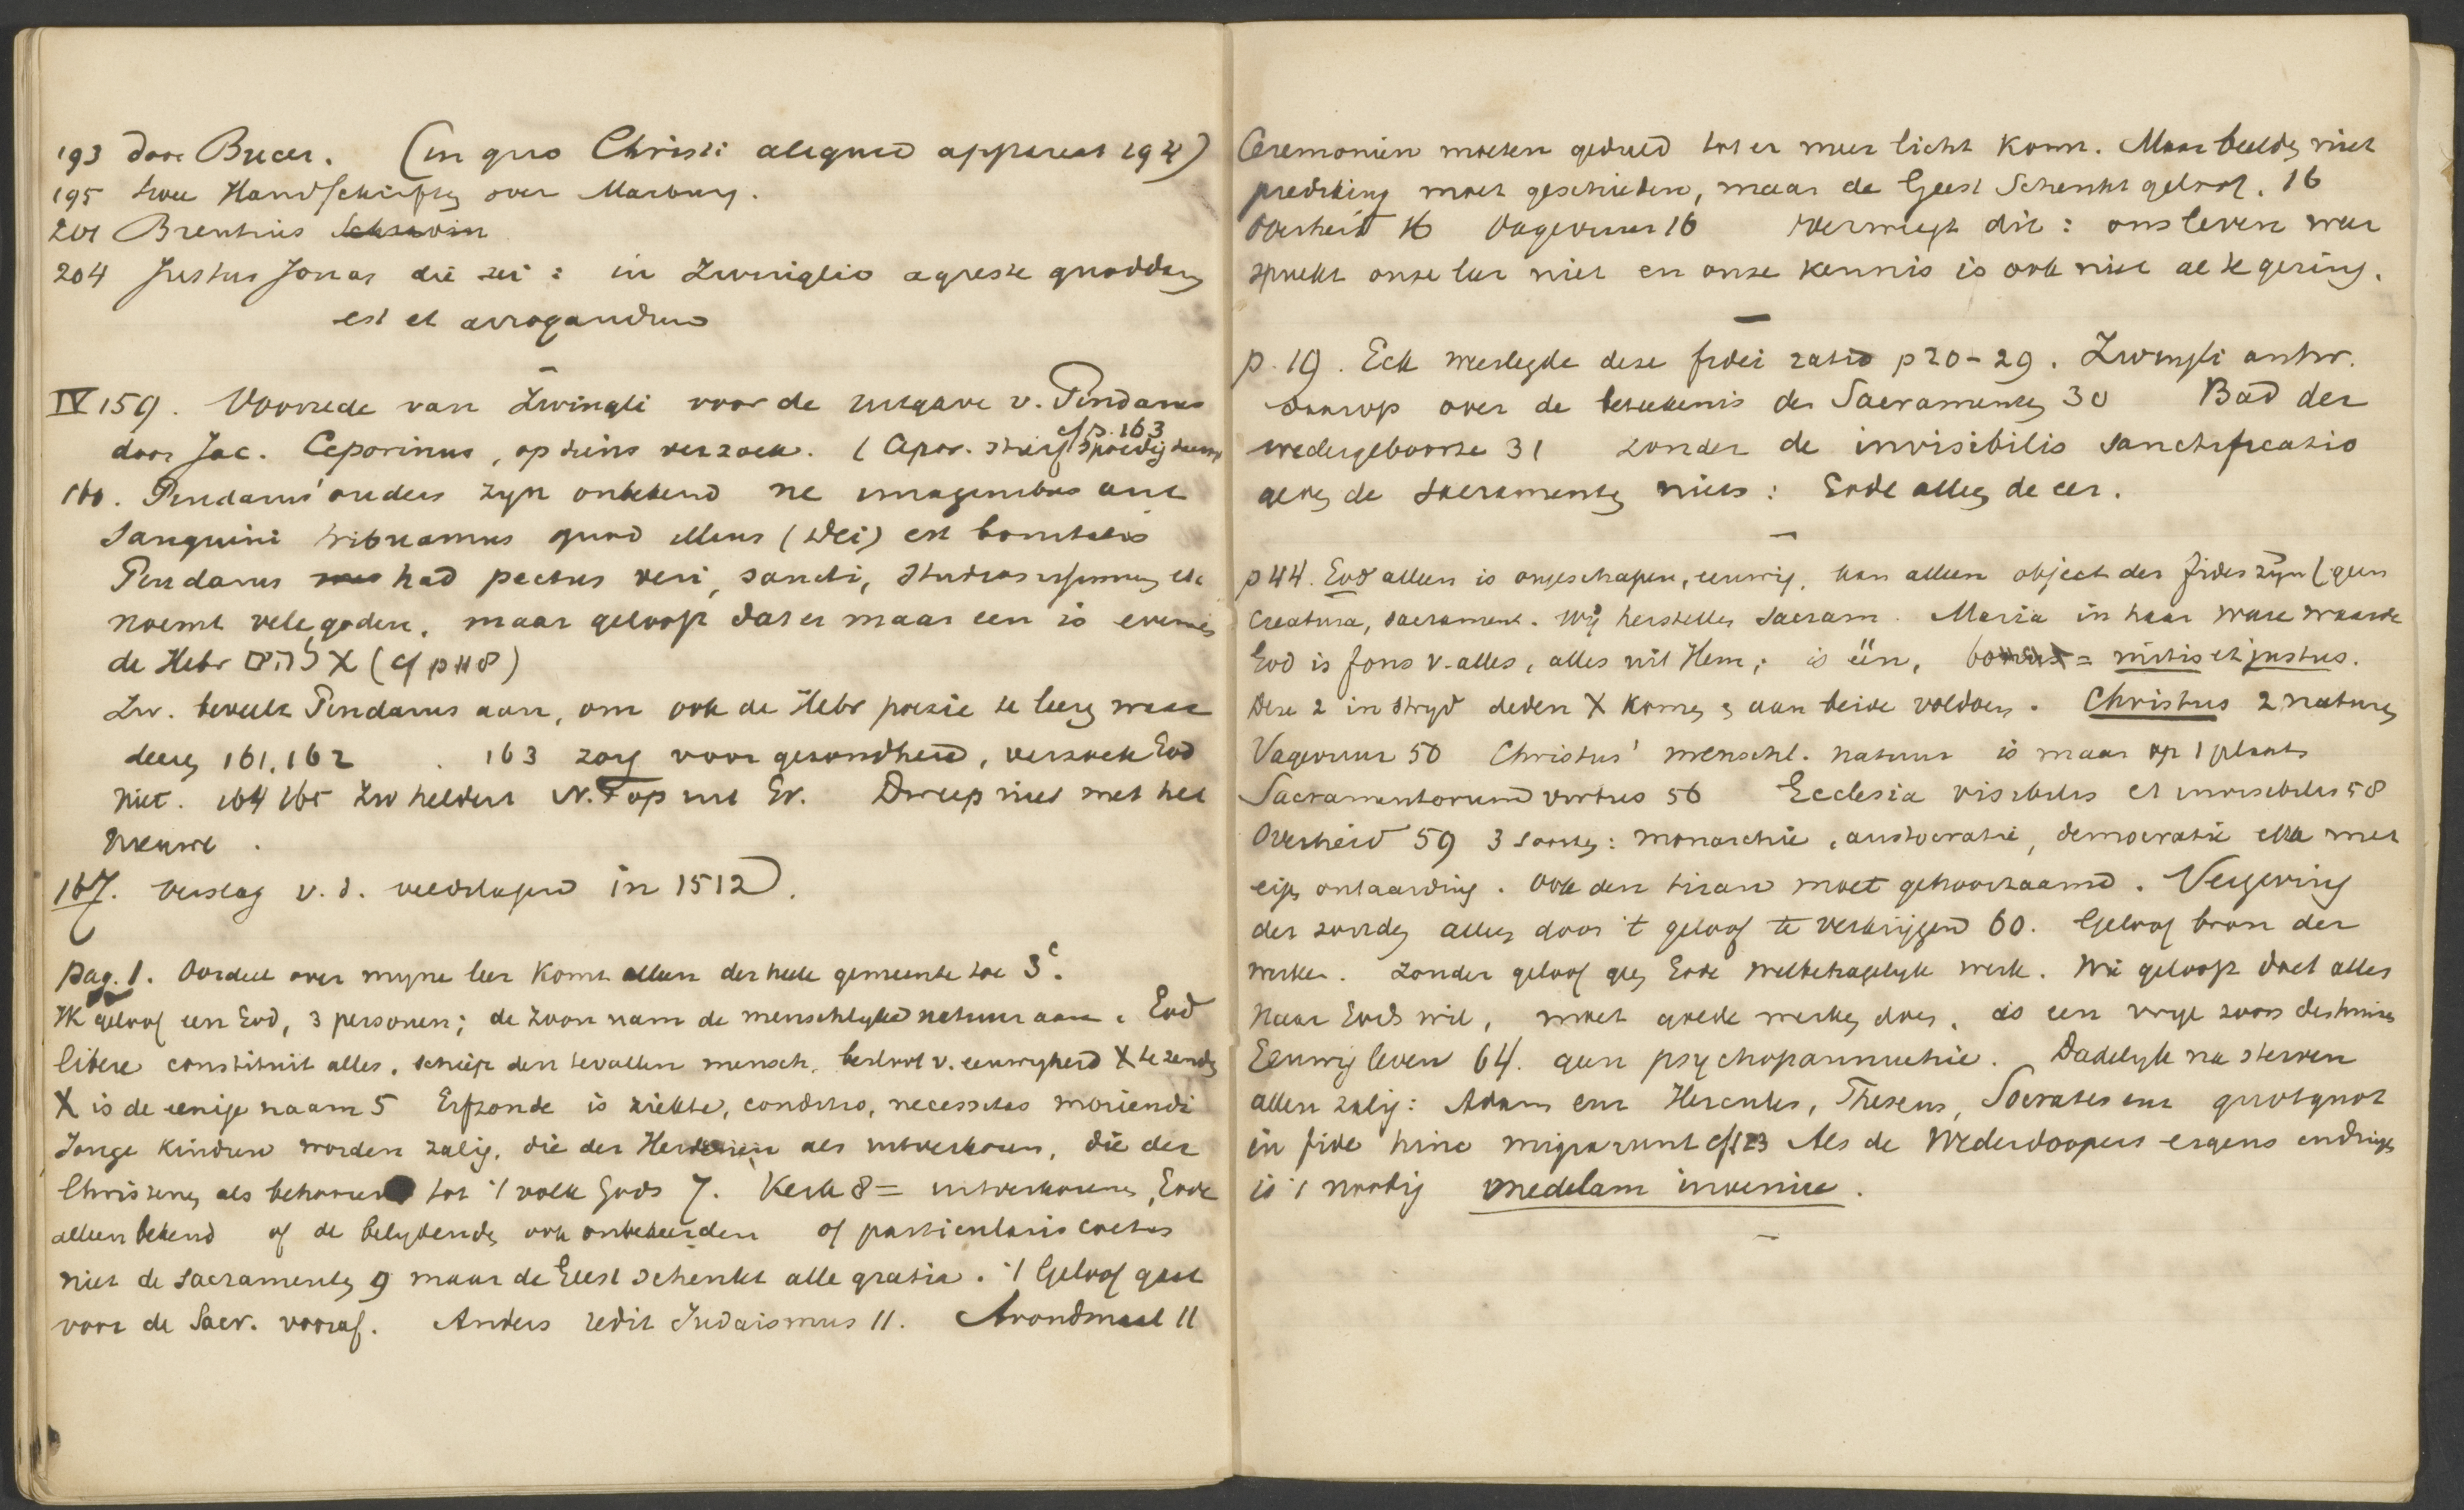 193 door Bucer. (in quo Christi aliquid apparet 194)
195 twee Handschriften over Marburg.
201 Brentius
204 Justus Jonas die zei: in Zwinglio agreste quoddam
est et arrogandum
IV 159. Voorrede van Zwingli voor de uitgave v. Pindarus
cf p. 163
door Jac. Ceporinus, op diens verzoek. (Cepor. stierf spoedig
160. Pindarus' ouders zyn onbekend ne imaginibus aut
sanguini tribuamus quod illius (Dei) est bonitatis
Pindarus had pectus veri, sancti, studiosissimum etc
noemt vele goden, maar gelooft dat er maar een is evenals
de Hebr אלהים (cf p 118)
Zw. beveelt Pindarus aan, om ook de Hebr poezie te leeren
deeren 161, 162. 163 zorg voor gezondheid, verzoek God
niet. 164 165 Zw heldert N.T op uit Gr. Dweep niet met het
nieuwe.
167. Verslag v. d. veldslagen in 1512.
pag. 1. Oordeel over myne leer komt alleen der heele gemeente toe 3c.
Ik geloof een God, 3 personen; de Zoon nam de menschlyke natuur aan. God
libere constituit alles, schiep den tevallen mensch, besloot v. eeuwigheid X te zenden
X is de eenige naam 5 Erfzonde is ziekte, conditio, necessitas moriendi
Jonge kinderen worden zalig, die der Heidenen als uitverkoren, die der
Christenen als behoorend tot 't volk Gods 7. Kerk 8 = uitverkorenen, Gode
alleen bekend of de belydende, ook onbekeerden of particularis coetus
niet de sacramenten 9 maar de Geest schenkt alle gratia. 't Geloof gaat
voor de Sacr. vooraf. Anders redit Judaismus 11. Avondmaal 11
Ceremonien moeten geduld tot er meer licht komt. Maar beelden niet
prediking moet geschieden, maar de Geest schenkt geloof. 16
Overheid 16 Vagevuur 16 verwerpt dit: ons leven weer
spreekt onze leer niet en onze kennis is ook niet al te gering.
p. 19. Eck weerlegde deze fidei ratio p 20-29. Zwingli antw.
daarop over de beteekenis der Sacramenten 30 Bad der
wedergeboorte 31 zonder de invisibilis sanctificatio
geven de sacramenten niets: Gode alleen de eer.
p 44. God alleen is ongeschapen, eeuwig, kan alleen object der fides zijn (geen
creatura, sacrament. Wij herstellen Sacram. Maria in haar ware waarde
God is fons v. alles, alles uit Hem; is één, bonus = mitis et justus.
Deze 2 in stryd deden X komen & aan beide voldoen. Christus 2 naturen
Vagevuur 50 Christus' menschl. natuur is maar op 1 plaats
Sacramentorum virtus 56 Ecclesia visibilis et invisibilis 58
Overheid 59 3 soorten: monarchie, aristocratie, democratie elk met
eigen ontaarding. Ook den tiran moet gehoorzaamd. Vergeving
der zonden alleen door 't geloof te verkrijgen 60. Geloof bron der
werken. Zonder geloof geen Gode welbehagelyk werk. Wie gelooft doet alles
naar Gods wil, moet goede werken doen, als een vrye zoon des huizes
Eeuwig leven 64. geen psychopannuchie. Dadelyk na sterven
allen zalig: Adam enz Hercules, Theseus, Socrates enz quotquot
in fide hinc migrarunt cf 123 Als de Wederdoopers ergens indringen
is 't noodig medelam invenire.